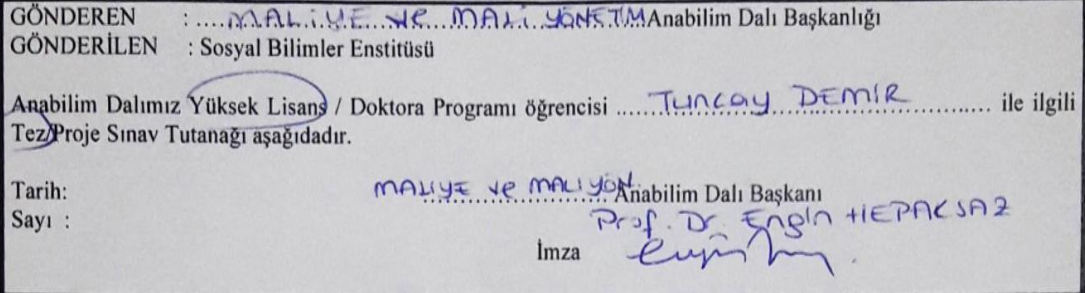 GÖNDEREN : ....MALİYE ve MALİ YÖNETM Anabilim Dalı Başkanlığı
GÖNDERİLEN : Sosyal Bilimler Enstitüsü
Anabilim Dalımız Yüksek Lisans / Doktora Programı öğrencisi ..... Tuncay DEMİR .................. ile ilgili
Tez/Proje Sınav Tutanağı aşağıdadır.
Tarih: MALİYE ve MALİ YÖN Anabilim Dalı Başkanı
Sayı : Prof. Dr. Engin HEPAKSAZ
İmza